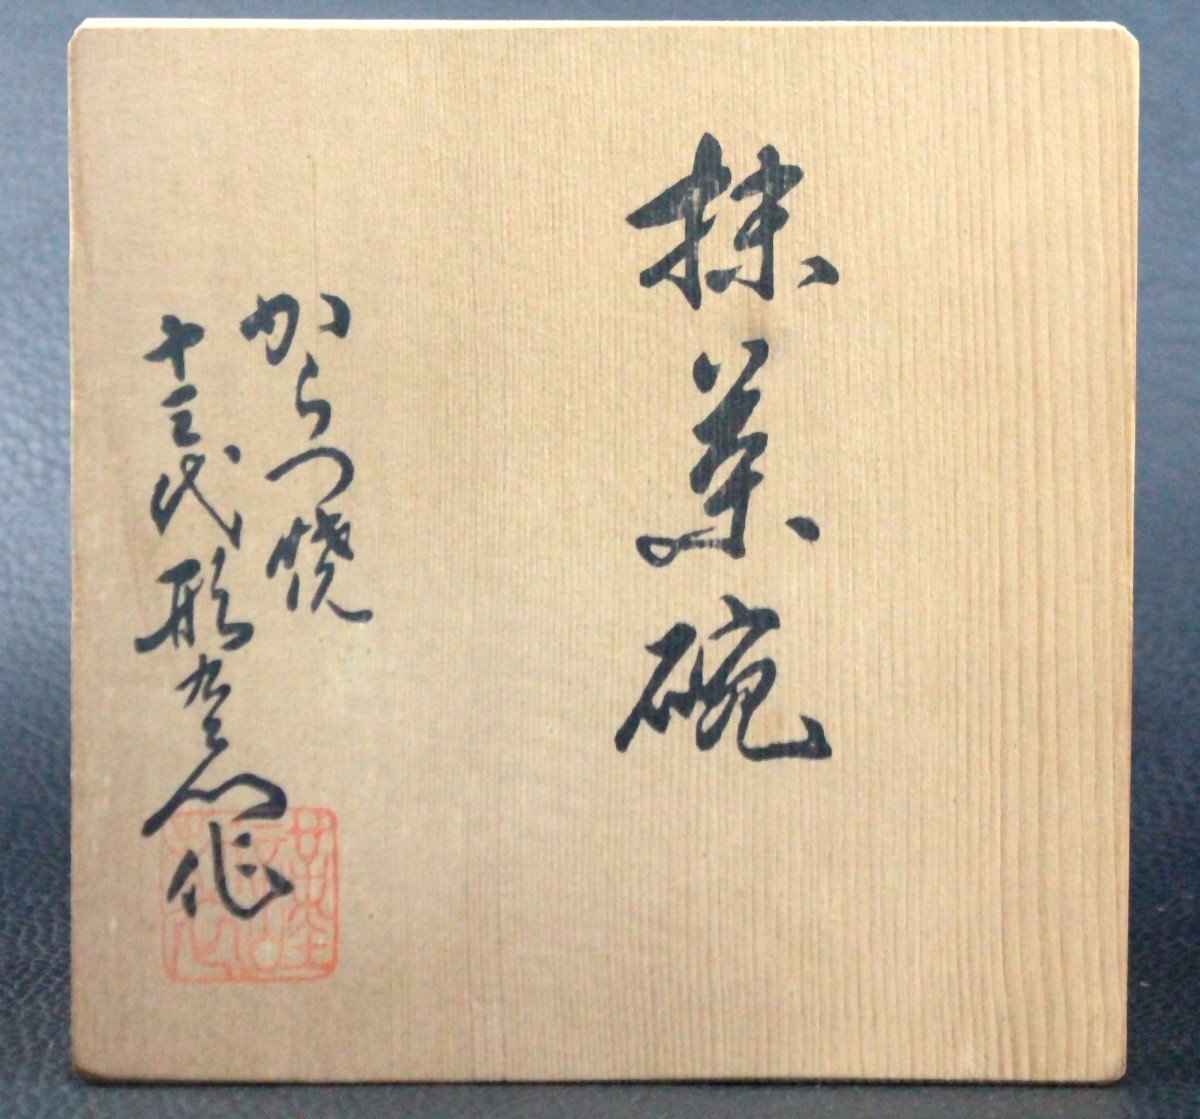 抹茶碗
からつ焼
十三代 彫左衛門作